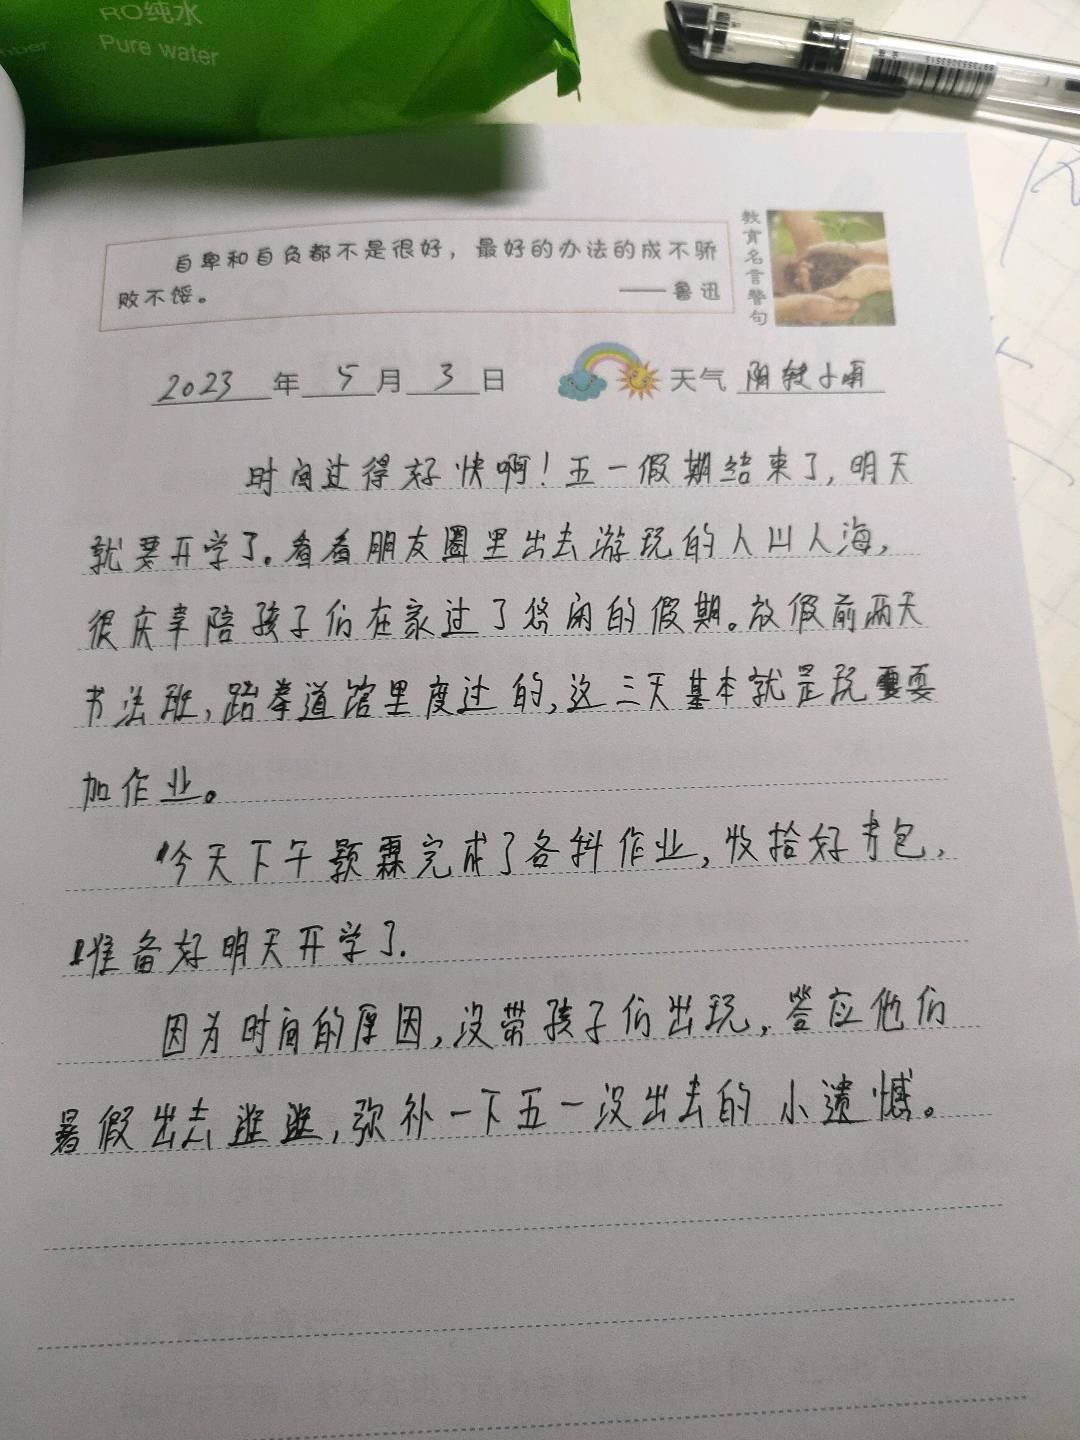 RO纯水
Pure water
自卑和自负都不是很好，最好的办法的成不骄
败不馁。
——鲁迅
教育名言警句
2023年5月3日 天气 阴转小雨
时间过得好快啊！五一假期结束了，明天
就要开学了。看看朋友圈里出去游玩的人山人海，
很庆幸陪孩子们在家过了悠闲的假期。放假前两天
书法班，跆拳道馆里度过的，这三天基本就是玩耍
加作业。
今天下午颢霖完成了各科作业，收拾好书包，
准备好明天开学了.
因为时间的厚因，没带孩子们出玩，答应他们
暑假出去逛逛，弥补一下五一没出去的小遗憾。